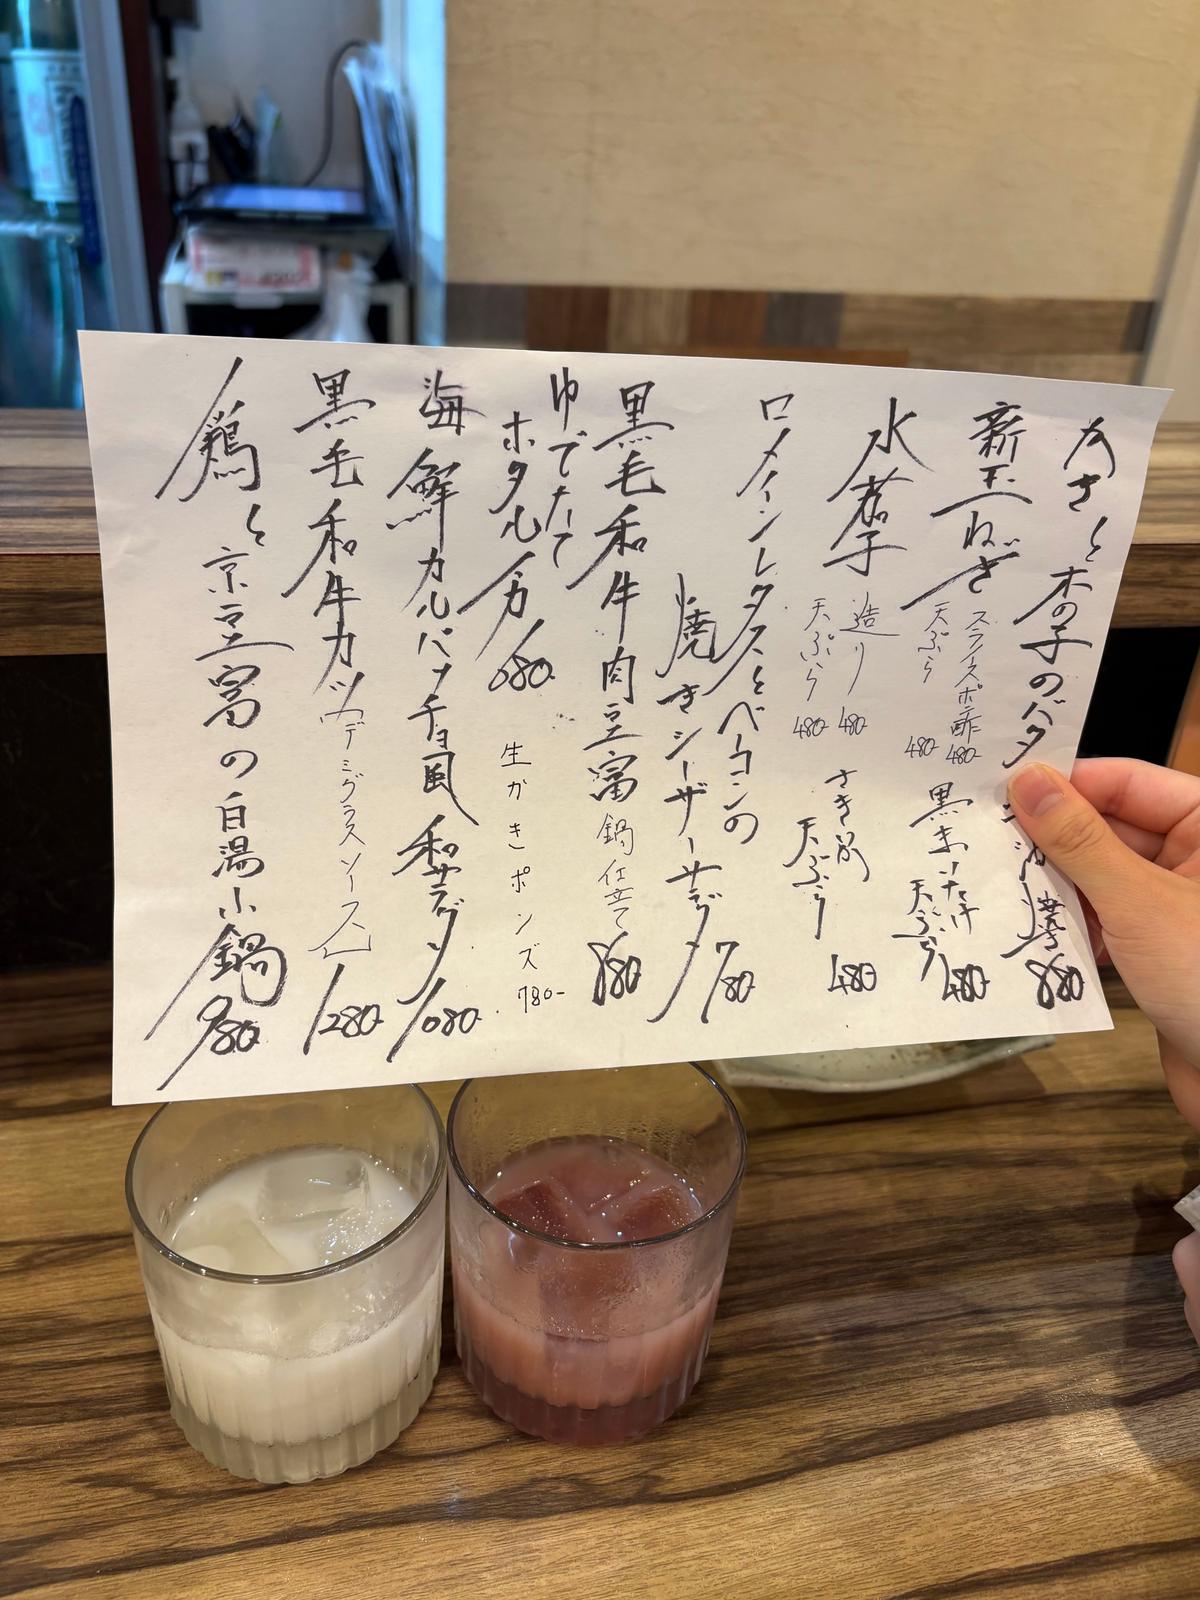 かきと木の子のバタ
880
新玉ねぎ
スライスポン酢 480-
天ぷら 480-
黒まいたけ
天ぷら
480
水茄子
造り 480
天ぷら 480-
さきいか
天ぷら
480
ロメインレタスとベーコンの
焼きシーザーサラダ
780
黒毛和牛肉豆富 鍋仕立て
880
ゆでたて
ホタルイカ
680-
生かきポンズ
780-
海鮮カルパッチョ風和サラダ
1080-
黒毛和牛カツ[デミグラスソース]
1280
鶏と京豆富の白湯小鍋
980